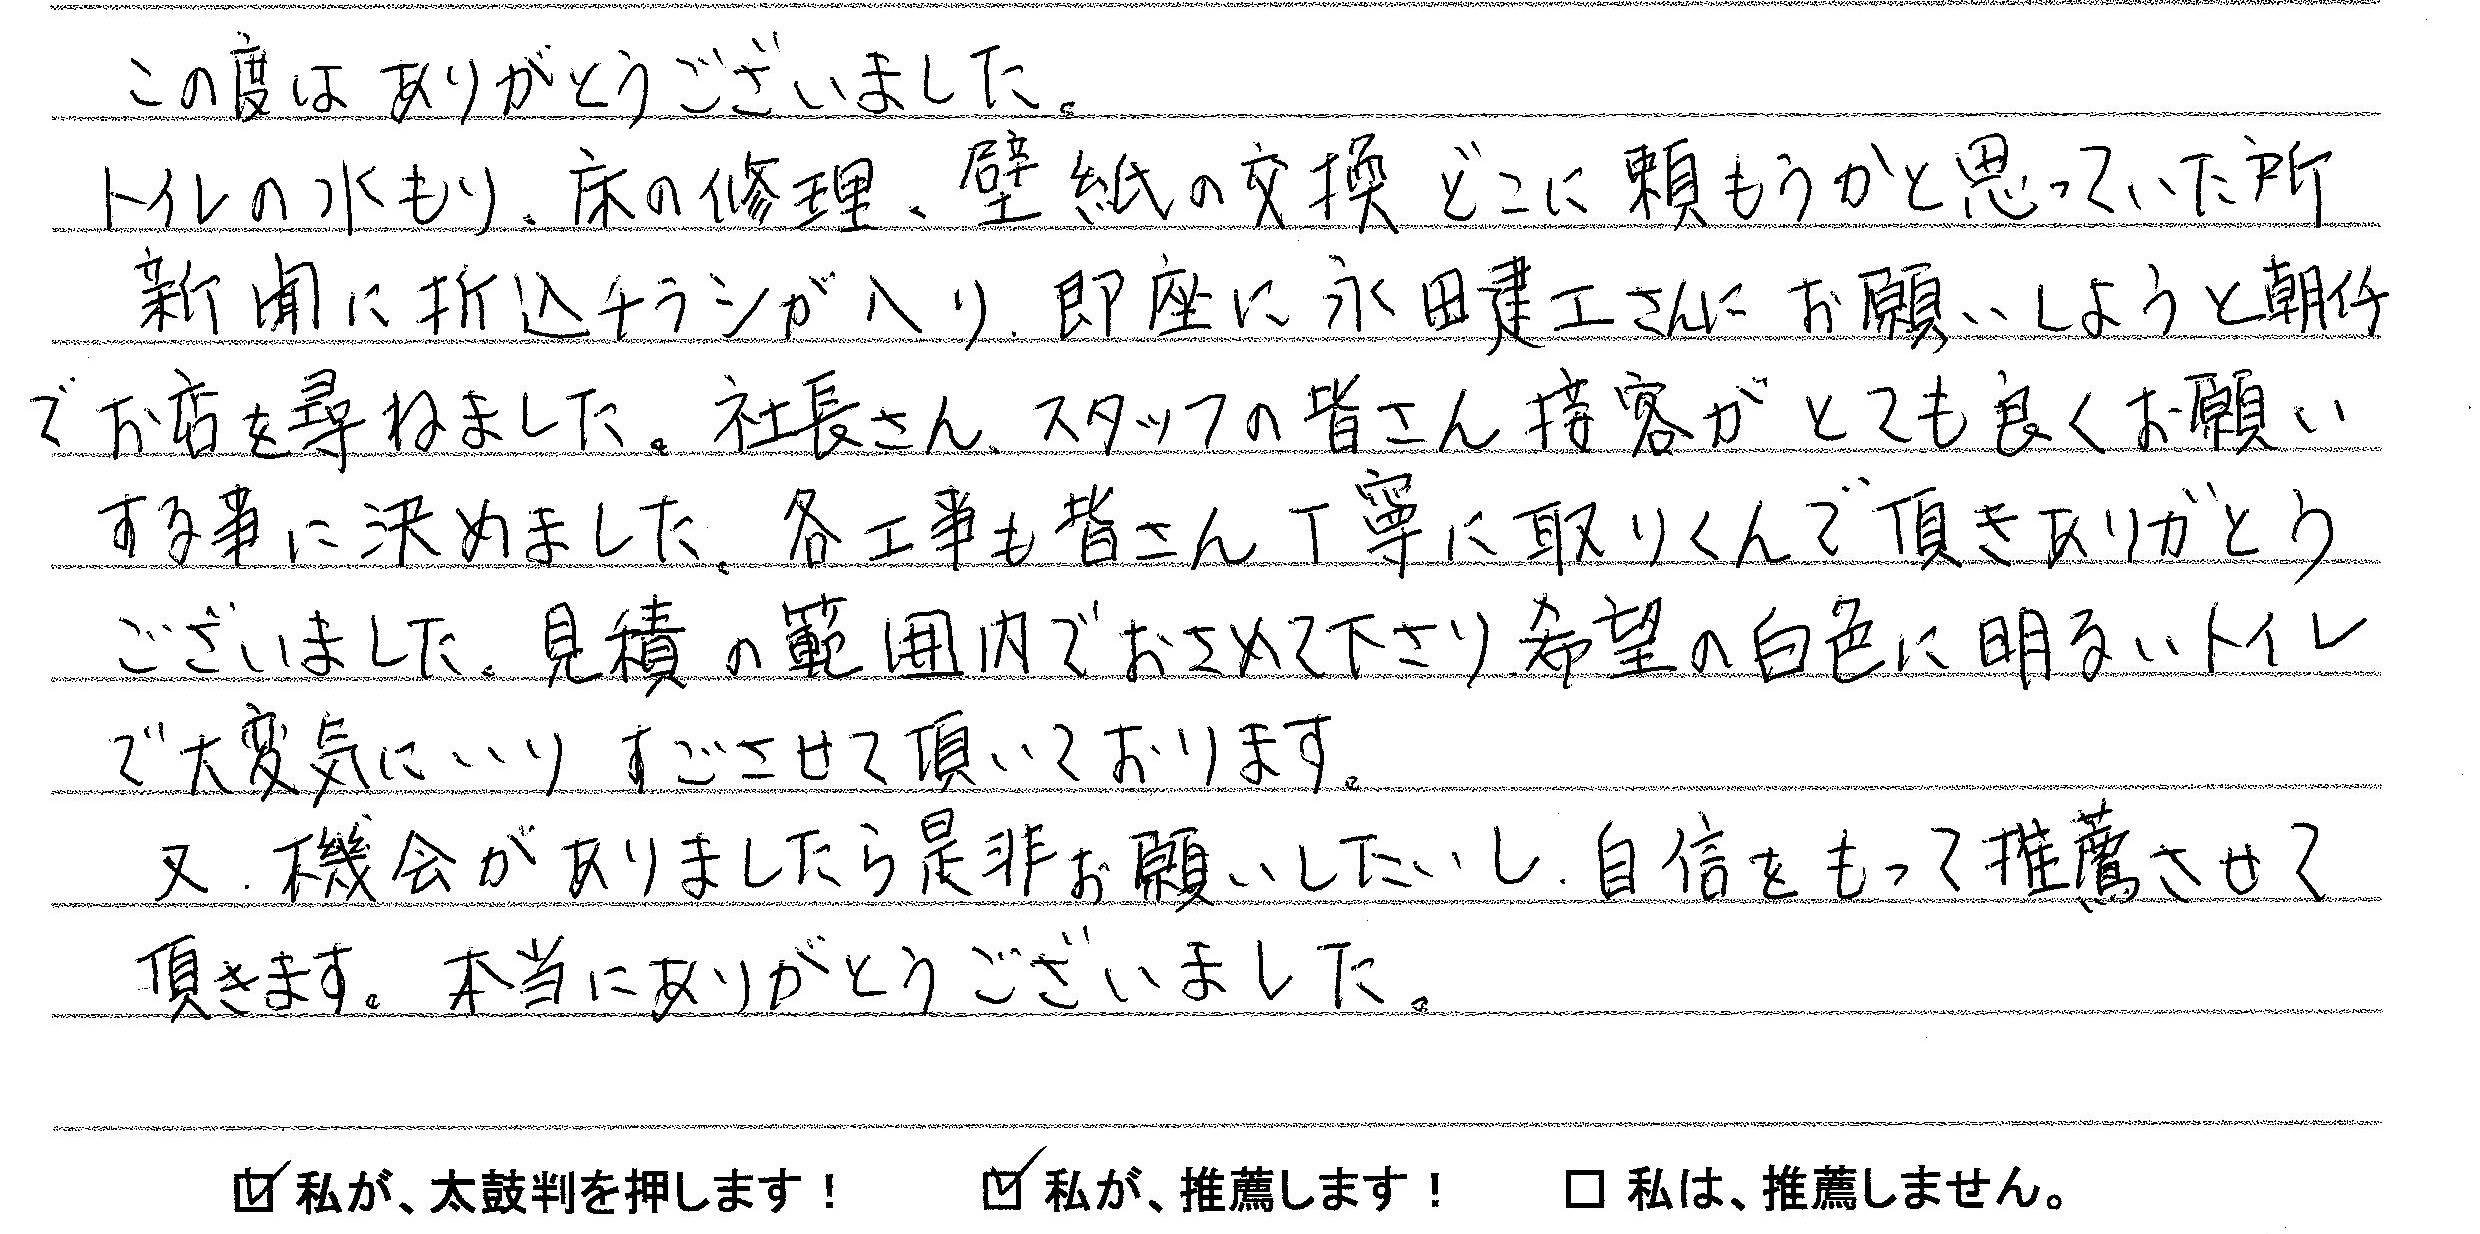 この度はありがとうございました。
トイレの水もり、床の修理、壁紙の交換どこに頼もうかと思っていた所
新聞に折込チラシが入り、即座に永田建工さんにお願いしようと朝行
でお店を尋ねました。社長さん、スタッフの皆さん接客がとても良くお願い
する事に決めました。各工事も皆さん丁寧に取りくんで頂きありがとう
ございました。見積の範囲内でおさめて下さり、希望の白色に明るいトイレ
で大変気にいりすごさせて頂いております。
又、機会がありましたら是非お願いしたいし、自信をもって推薦させて
頂きます。本当にありがとうございました。
☑ 私が、太鼓判を押します！ ☑ 私が、推薦します！ □ 私は、推薦しません。